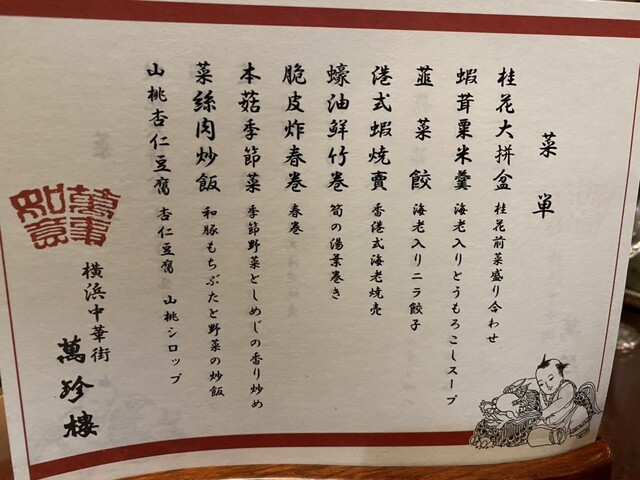 菜単
桂花大拼盆 桂花前菜盛り合わせ
蝦茸粟米羹 海老入りとうもろこしスープ
韮菜餃 海老入りニラ餃子
港式蝦焼賣 香港式海老焼売
蠔油鮮竹巻 筍の湯葉巻き
脆皮炸春巻 春巻
本菇季節菜 季節野菜としめじの香り炒め
菜絲肉炒飯 和豚もちぶたと野菜の炒飯
山桃杏仁豆腐 杏仁豆腐 山桃シロップ
萬事
如意
横浜中華街
萬珍樓